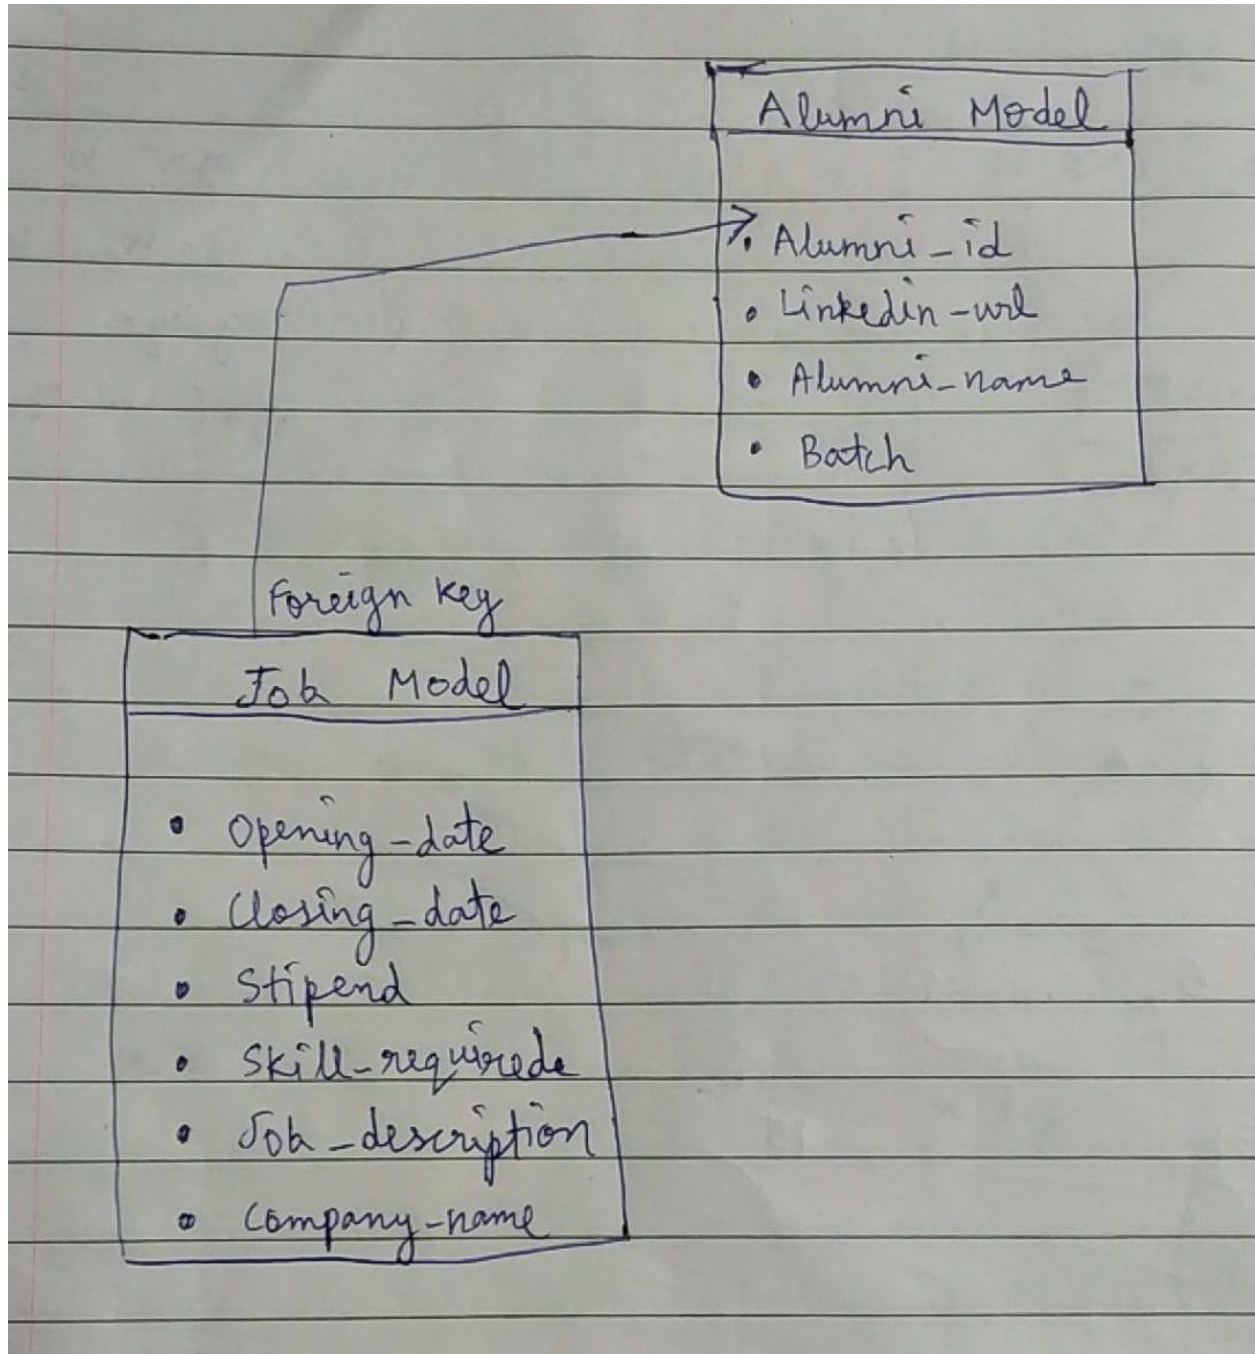 Alumni Model
• Alumni_id
• Linkedin-url
• Alumni-name
• Batch
Foreign Key
Job Model
• Opening_date
• Closing_date
• Stipend
• Skill-requirede
• Job_description
• Company-name